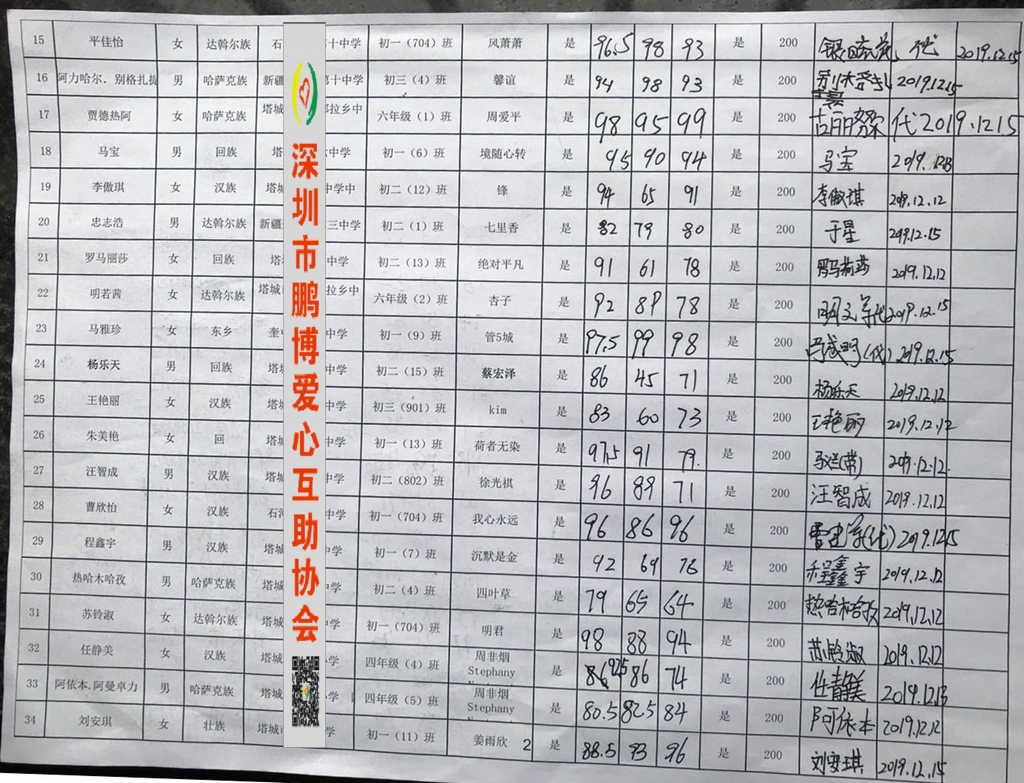 15 平佳怡 女 达斡尔族 石 十中学 初一（704）班 风萧萧 是 96.5 98 93 是 200 代 2019.12.15
16 阿力哈尔．别格扎提 男 哈萨克族 新疆 第十中学 初三（4）班 馨谊 是 94 98 93 是 200 2019.12.15
17 贾德热阿 女 哈萨克族 塔城 拉乡中 六年级（1）班 周爱平 是 98 95 99 是 200 代 2019.12.15
18 马宝 男 回族 塔 中学 初一（6）班 境随心转 是 95 90 94 是 200 马宝 2019.
19 李傲琪 女 汉族 塔城 学中 初二（12）班 锋 是 94 65 91 是 200 李傲琪 2019.12.12
20 忠志浩 男 达斡尔族 新疆 三中学 初二（1）班 七里香 是 82 79 80 是 200 于星 2019.12.15
21 罗马丽莎 女 回族 塔 中学 初二（13）班 绝对平凡 是 91 61 78 是 200 2019.12.12
22 明若茜 女 达斡尔族 塔城 拉乡中 六年级（2）班 杏子 是 92 89 78 是 200 2019.12.15
23 马雅珍 女 东乡 奎 中学 初一（9）班 管5城 是 97.5 99 98 是 200 (代) 2019.12.15
24 杨乐天 男 回族 塔城 中学 初二（15）班 蔡宏泽 是 86 45 71 是 200 杨乐天 2019.12.12
25 王艳丽 女 汉族 塔城 中学 初三（901）班 kim 是 83 60 73 是 200 王艳丽 2019.12.12
26 朱美艳 女 回 塔城 中学 初一（13）班 荷者无染 是 97.5 91 79. 是 200 2019.12.12.
27 汪智成 男 汉族 塔城 中学 初二（802）班 徐光祺 是 96 89 71 是 200 汪智成 2019.12.12
28 曹欣怡 女 汉族 石 中学 初一（704）班 我心永远 是 96 86 96 是 200 (代) 2019.12.15
29 程鑫宇 男 汉族 塔城 中学 初一（7）班 沉默是金 是 92 69 76 是 200 程鑫宇 2019.12.12
30 热哈木哈孜 男 哈萨克族 塔城 中学 初二（4）班 四叶草 是 79 65 64 是 200 热哈木哈孜 2019.12.12
31 苏铃淑 女 达斡尔族 塔城 中学 初一（704）班 明君 是 98 88 94 是 200 苏铃淑 2019.12.12
32 任静美 女 汉族 塔城 小学 四年级（4）班 周非烟 Stephany 是 86 92.5 86 74 是 200 任静美 2019.12.13
33 阿依本.阿曼卓力 男 哈萨克族 塔城 小学 四年级（5）班 周非烟 Stephany 是 80.5 82.5 84 是 200 阿依本 2019.12.12
34 刘安琪 女 壮族 塔城 中学 初一（11）班 姜雨欣 是 88.5 93 96 是 200 刘安琪 2019.12.15
2
深圳市鹏博爱心互助协会